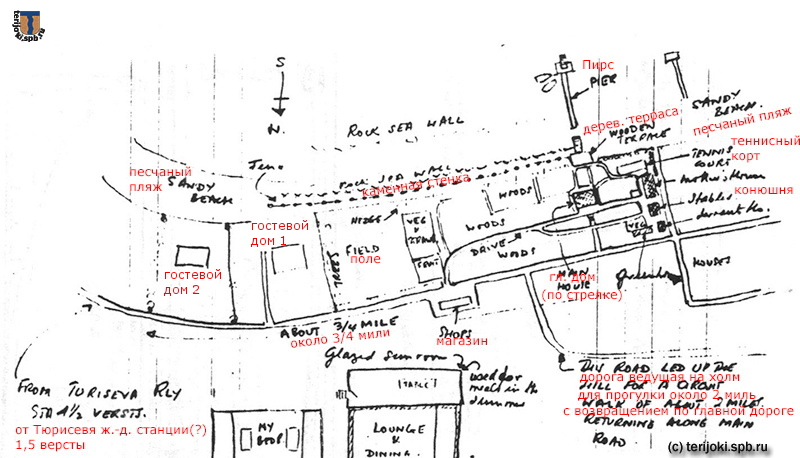 terijoki.spb.ru
S
N.
ROCK SEA WALL
Пирс
PIER
SANDY
BEACH.
песчаный пляж
дерев. терраса
WOODEN
TERRACE
песчаный
пляж
SANDY
BEACH
ROCK SEA WALL
каменная стенка
TENNIS
COURT
теннисный
корт
конюшня
Stables
HEDGE
WOODS
WOODS
VEG
гостевой
дом 1
гостевой
дом 2
TREES
FIELD
поле
DRIVE
WOODS
VEG
MAIN
HOUSE
гл. дом
(по стрелке)
HOUSES
ABOUT 3/4 MILE
около 3/4 мили
SHOPS
магазин
Glazed sun room
used for
meals in the
summer
TABLE
FROM TURISEVA RLY
STA 1½ VERSTS.
от Тюрисевя ж.-д. станции(?)
1,5 версты
MY
LOUNGE
&
DINING.
THIS ROAD LED UP THE
HILL FOR A CIRCUIT
WALK OF ABOUT 2 MILES.
RETURNING ALONG MAIN
ROAD
дорога ведущая на холм
для прогулки около 2 миль
с возвращением по главной дороге
(c) terijoki.spb.ru